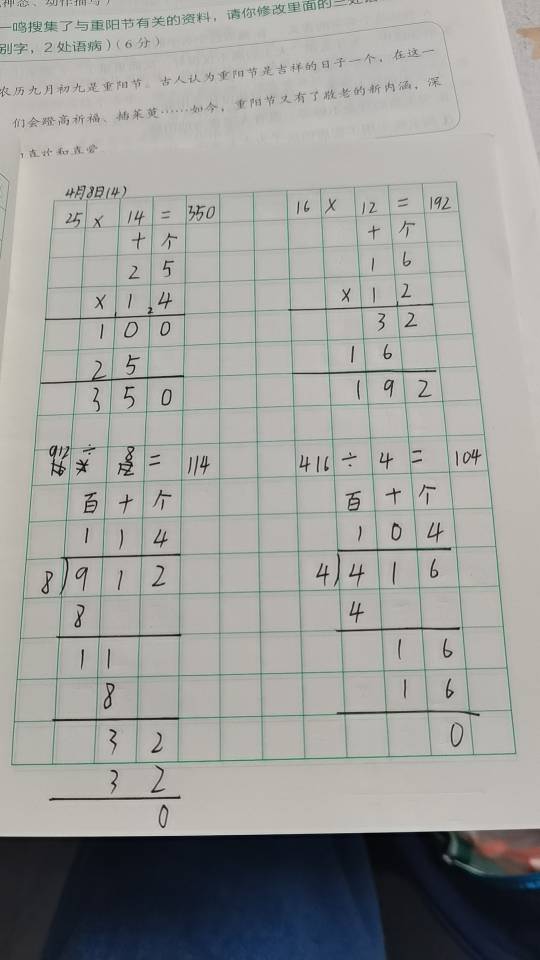 一鸣搜集了与重阳节有关的资料，请你修改里面的三处
别字，2处语病)(6分)
农历九月初九是重阳节。古人认为重阳节是吉祥的日子一个，在这一
们会蹬高祈福、插茱萸……如今，重阳节又有了敬老的新内涵，深
4月8日(4)
25 × 14 = 350
十 个
2 5
× 1 2 4
1 0 0
2 5
3 5 0
16 × 12 = 192
十 个
1 6
× 1 2
3 2
1 6
1 9 2
912 ÷ 8 = 114
百 十 个
1 1 4
8)9 1 2
8
1 1
8
3 2
3 2
0
416 ÷ 4 = 104
百 十 个
1 0 4
4)4 1 6
4
1 6
1 6
0